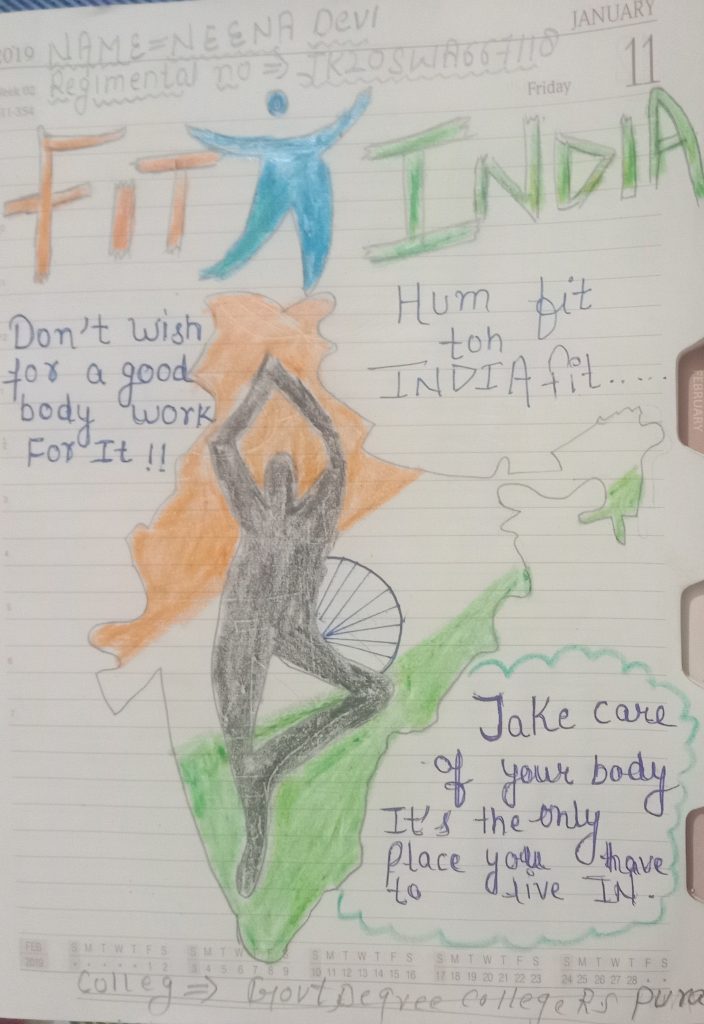 JANUARY
2019 NAME=NEENA DevI
Regimental no ⇒ JK20SWA667118
Week 02
11-354
Friday 11
FIT INDIA
Don't wish
for a good
body work
For It !!
Hum fit
toh
INDIA fit......
FEBRUARY
Take care
of your body
It's the only
Place you have
to live IN.
FEB 2019
S M T W T F S S M T W T F S S M T W T F S S M T W T F S S M T W T F S
• • • • • 1 2 3 4 5 6 7 8 9 10 11 12 13 14 15 16 17 18 19 20 21 22 23 24 25 26 27 28 • •
Colleg ⇒ Govt Degree College RS Pura